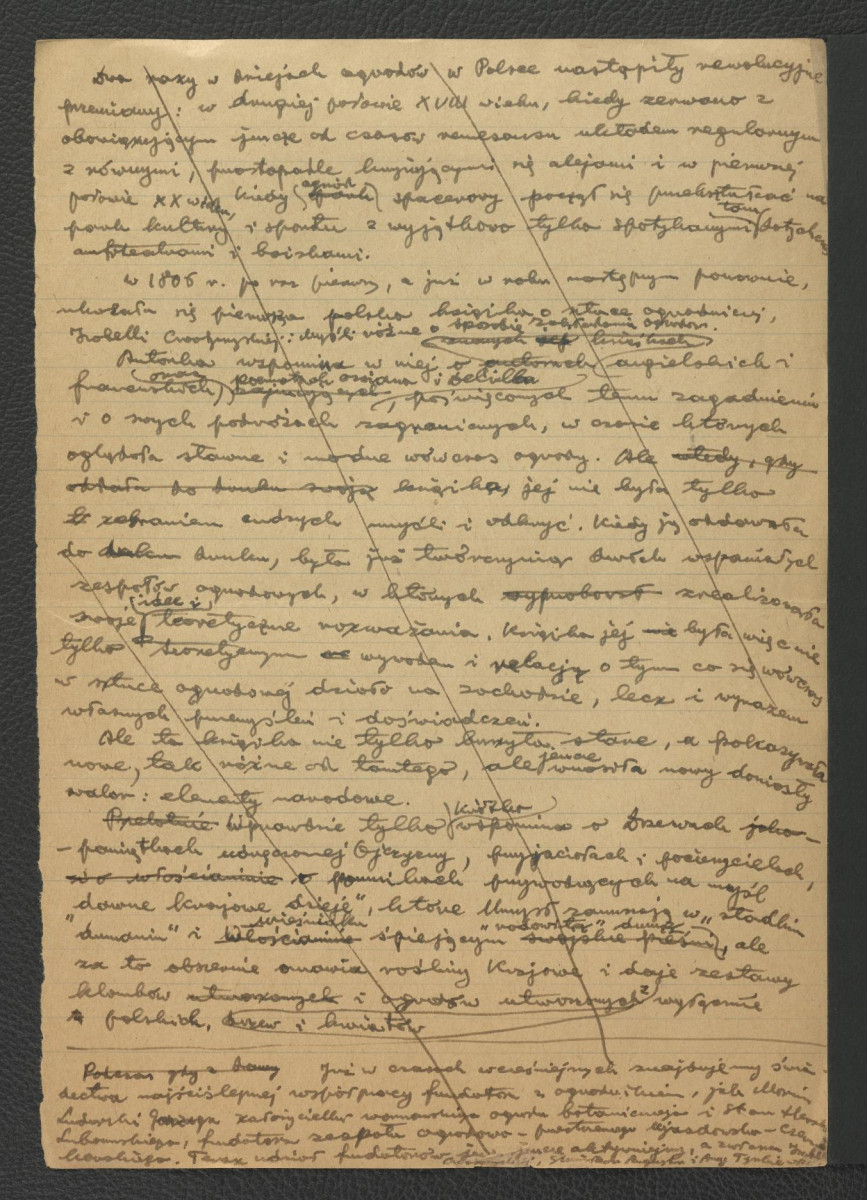 Dwa razy w dziejach ogrodów w Polsce nastąpiły rewolucyjne
przemiany: w drugiej połowie XVIII wieku, kiedy zerwano z
obowiązującym jeszcze od czasów renesansu układem regularnym
z równymi, prostopadle krzyżującymi się alejami i w pierwszej
połowie XX wieku, kiedy ogród park spacerowy począł się przekształcać na
park kultury i sportu z wyjątkowo tylko spotykanymi tam dotychczas
amfiteatrami i boiskami.
w 1805 r. po raz pierwszy, a już w roku następnym ponownie,
ukazała się pierwsza polska książka o sztuce ogrodniczej,
Izabelli Czartoryskiej: Myśli różne o sposobie zakładania ogrodów.
Autorka wspomina w niej o autorach angielskich i
francuskich oraz Delille
, poświęconych temu zagadnieniu
i o swych podróżach zagranicznych, w czasie których
oglądała sławne i modne wówczas ogrody. Ale wtedy, gdy
oddała do druku swoją książka jej nie była tylko
zebraniem cudzych myśli i odkryć. Kiedy ją oddawała
do druku, była już twórczynią dwóch wspaniałych
zespołów ogrodowych, w których zrealizowała
swoje idee i teoretyczne rozważania. Książka jej nie była więc nie
tylko teoretycznym wywodem i relacją o tym co się wówczas
w sztuce ogrodowej działo na zachodzie, lecz i wyrazem
własnych przemyśleń i doświadczeń.
Ale ta książka nie tylko burzyła stare, a pokazywała
nowe, tak różne od tamtego, ale jeszcze wnosiła nowy doniosły
walor: elementy narodowe.
Przelotnie Wprawdzie tylko krótko wspomina o Drzewach jako
- pamiątkach udręczonej Ojczyzny, przyjaciołach i pocieszycielach,
o włościaninie pomnikach przywodzących na myśl
"dawne krajowe dzieje", które Umysł zanurzają w "słodkim
dumaniu" i wieśniaku włościaninie śpiewającym "rodowitą" dumkę swojskie pieśni, ale
za to obszernie omawia rośliny krajowe i daje zestawy
klombów utworzonych i ogrodów utworzonych wyłącznie
z polskich, drzew i kwiatów
Podczas gdy z dawny Już w czasach wcześniejszych znajdujemy świa-
dectwa najściślejszej współpracy fundatora z ogrodnikiem, jak Maria
Ludwika założycielka warszawskiego ogrodu botanicznego i Stan. Herakl.
Lubomirskiego, fundatora zespołu ogrodowo - Ujazdowsko - Czernia-
kowskiego. Teraz udział fundatorów jest jeszcze aktywniejszy, a zwłaszcza Izabelli
Czartoryskiej, Stanisława Augusta i